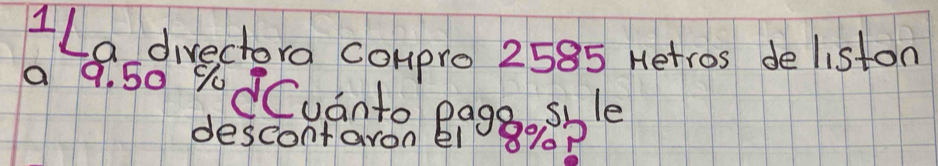 1 La directora compro 2585 metros de liston
a 9.50 % ¿Cuánto pago si le
descontaron el 8%?